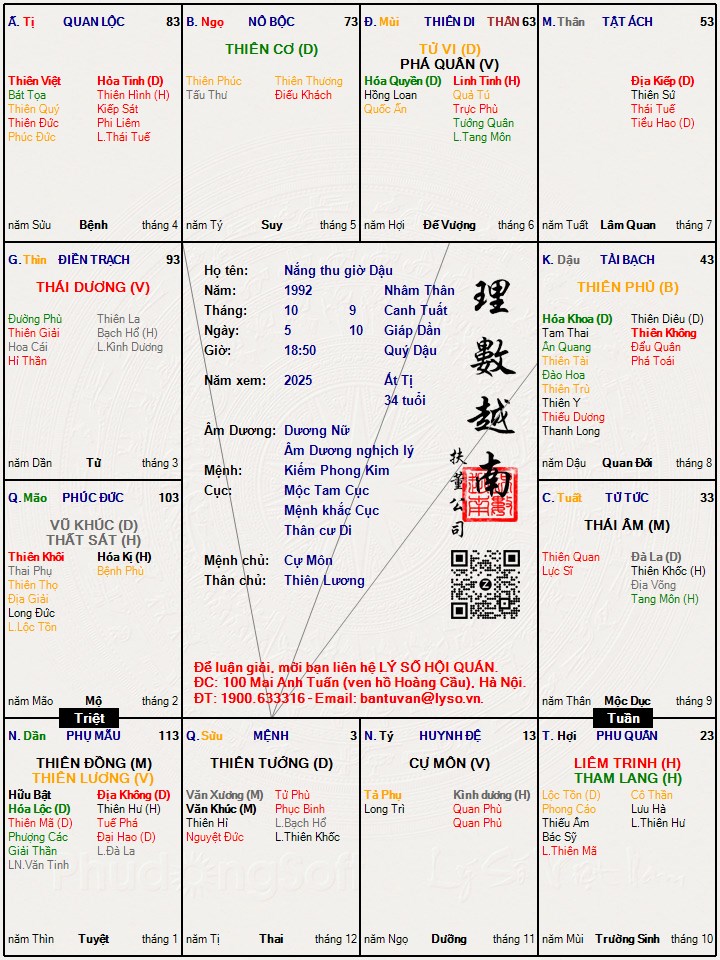 Ấ. Tị QUAN LỘC 83
Thiên Việt Hỏa Tinh (D)
Bát Tọa Thiên Hình (H)
Thiên Quý Kiếp Sát
Thiên Đức Phi Liêm
Phúc Đức L.Thái Tuế
năm Sửu Bệnh tháng 4
B. Ngọ NÔ BỘC 73
THIÊN CƠ (D)
Thiên Phúc Thiên Thương
Tấu Thư Điếu Khách
năm Tý Suy tháng 5
Đ. Mùi THIÊN DI THÂN 63
TỬ VI (D)
PHÁ QUÂN (V)
Hóa Quyền (D) Linh Tinh (H)
Hồng Loan Quả Tú
Quốc Ấn Trực Phù
Tướng Quân
L.Tang Môn
năm Hợi Đế Vượng tháng 6
M. Thân TẬT ÁCH 53
Địa Kiếp (D)
Thiên Sứ
Thái Tuế
Tiểu Hao (D)
năm Tuất Lâm Quan tháng 7
G. Thìn ĐIỀN TRẠCH 93
THÁI DƯƠNG (V)
Đường Phù Thiên La
Thiên Giải Bạch Hổ (H)
Hoa Cái L.Kình Dương
Hỉ Thần
năm Dần Tử tháng 3
Họ tên: Nắng thu giờ Dậu
Năm: 1992 Nhâm Thân
Tháng: 10 9 Canh Tuất
Ngày: 5 10 Giáp Dần
Giờ: 18:50 Quý Dậu
Năm xem: 2025 Ất Tị
34 tuổi
Âm Dương: Dương Nữ
Âm Dương nghịch lý
Mệnh: Kiếm Phong Kim
Cục: Mộc Tam Cục
Mệnh khắc Cục
Thân cư Di
Mệnh chủ: Cự Môn
Thân chủ: Thiên Lương
理數越南
扶董公司
Để luận giải, mời bạn liên hệ LÝ SỐ HỘI QUÁN.
ĐC: 100 Mai Anh Tuấn (ven hồ Hoàng Cầu), Hà Nội.
ĐT: 1900.633316 - Email: bantuvan@lyso.vn.
K. Dậu TÀI BẠCH 43
THIÊN PHỦ (B)
Hóa Khoa (D) Thiên Diêu (D)
Tam Thai Thiên Không
Ân Quang Đẩu Quân
Thiên Tài Phá Toái
Đào Hoa
Thiên Trù
Thiên Y
Thiếu Dương
Thanh Long
năm Dậu Quan Đới tháng 8
Q. Mão PHÚC ĐỨC 103
VŨ KHÚC (D)
THẤT SÁT (H)
Thiên Khôi Hóa Kị (H)
Thai Phụ Bệnh Phù
Thiên Thọ
Địa Giải
Long Đức
L.Lộc Tồn
năm Mão Mộ tháng 2
C. Tuất TỬ TỨC 33
THÁI ÂM (M)
Thiên Quan Đà La (D)
Lực Sĩ Thiên Khốc (H)
Địa Võng
Tang Môn (H)
năm Thân Mộc Dục tháng 9
Triệt
Tuần
N. Dần PHỤ MẪU 113
THIÊN ĐỒNG (M)
THIÊN LƯƠNG (V)
Hữu Bật Địa Không (D)
Hóa Lộc (D) Thiên Hư (H)
Thiên Mã (D) Tuế Phá
Phượng Các Đại Hao (D)
Giải Thần L.Đà La
LN.Văn Tinh
năm Thìn Tuyệt tháng 1
Q. Sửu MỆNH 3
THIÊN TƯỚNG (D)
Văn Xương (M) Tử Phù
Văn Khúc (M) Phục Binh
Thiên Hỉ L.Bạch Hổ
Nguyệt Đức L.Thiên Khốc
năm Tị Thai tháng 12
N. Tý HUYNH ĐỆ 13
CỰ MÔN (V)
Tả Phụ Kình dương (H)
Long Trì Quan Phù
Quan Phủ
năm Ngọ Dưỡng tháng 11
T. Hợi PHU QUÂN 23
LIÊM TRINH (H)
THAM LANG (H)
Lộc Tồn (D) Cô Thần
Phong Cáo Lưu Hà
Thiếu Âm L.Thiên Hư
Bác Sỹ
L.Thiên Mã
năm Mùi Trường Sinh tháng 10